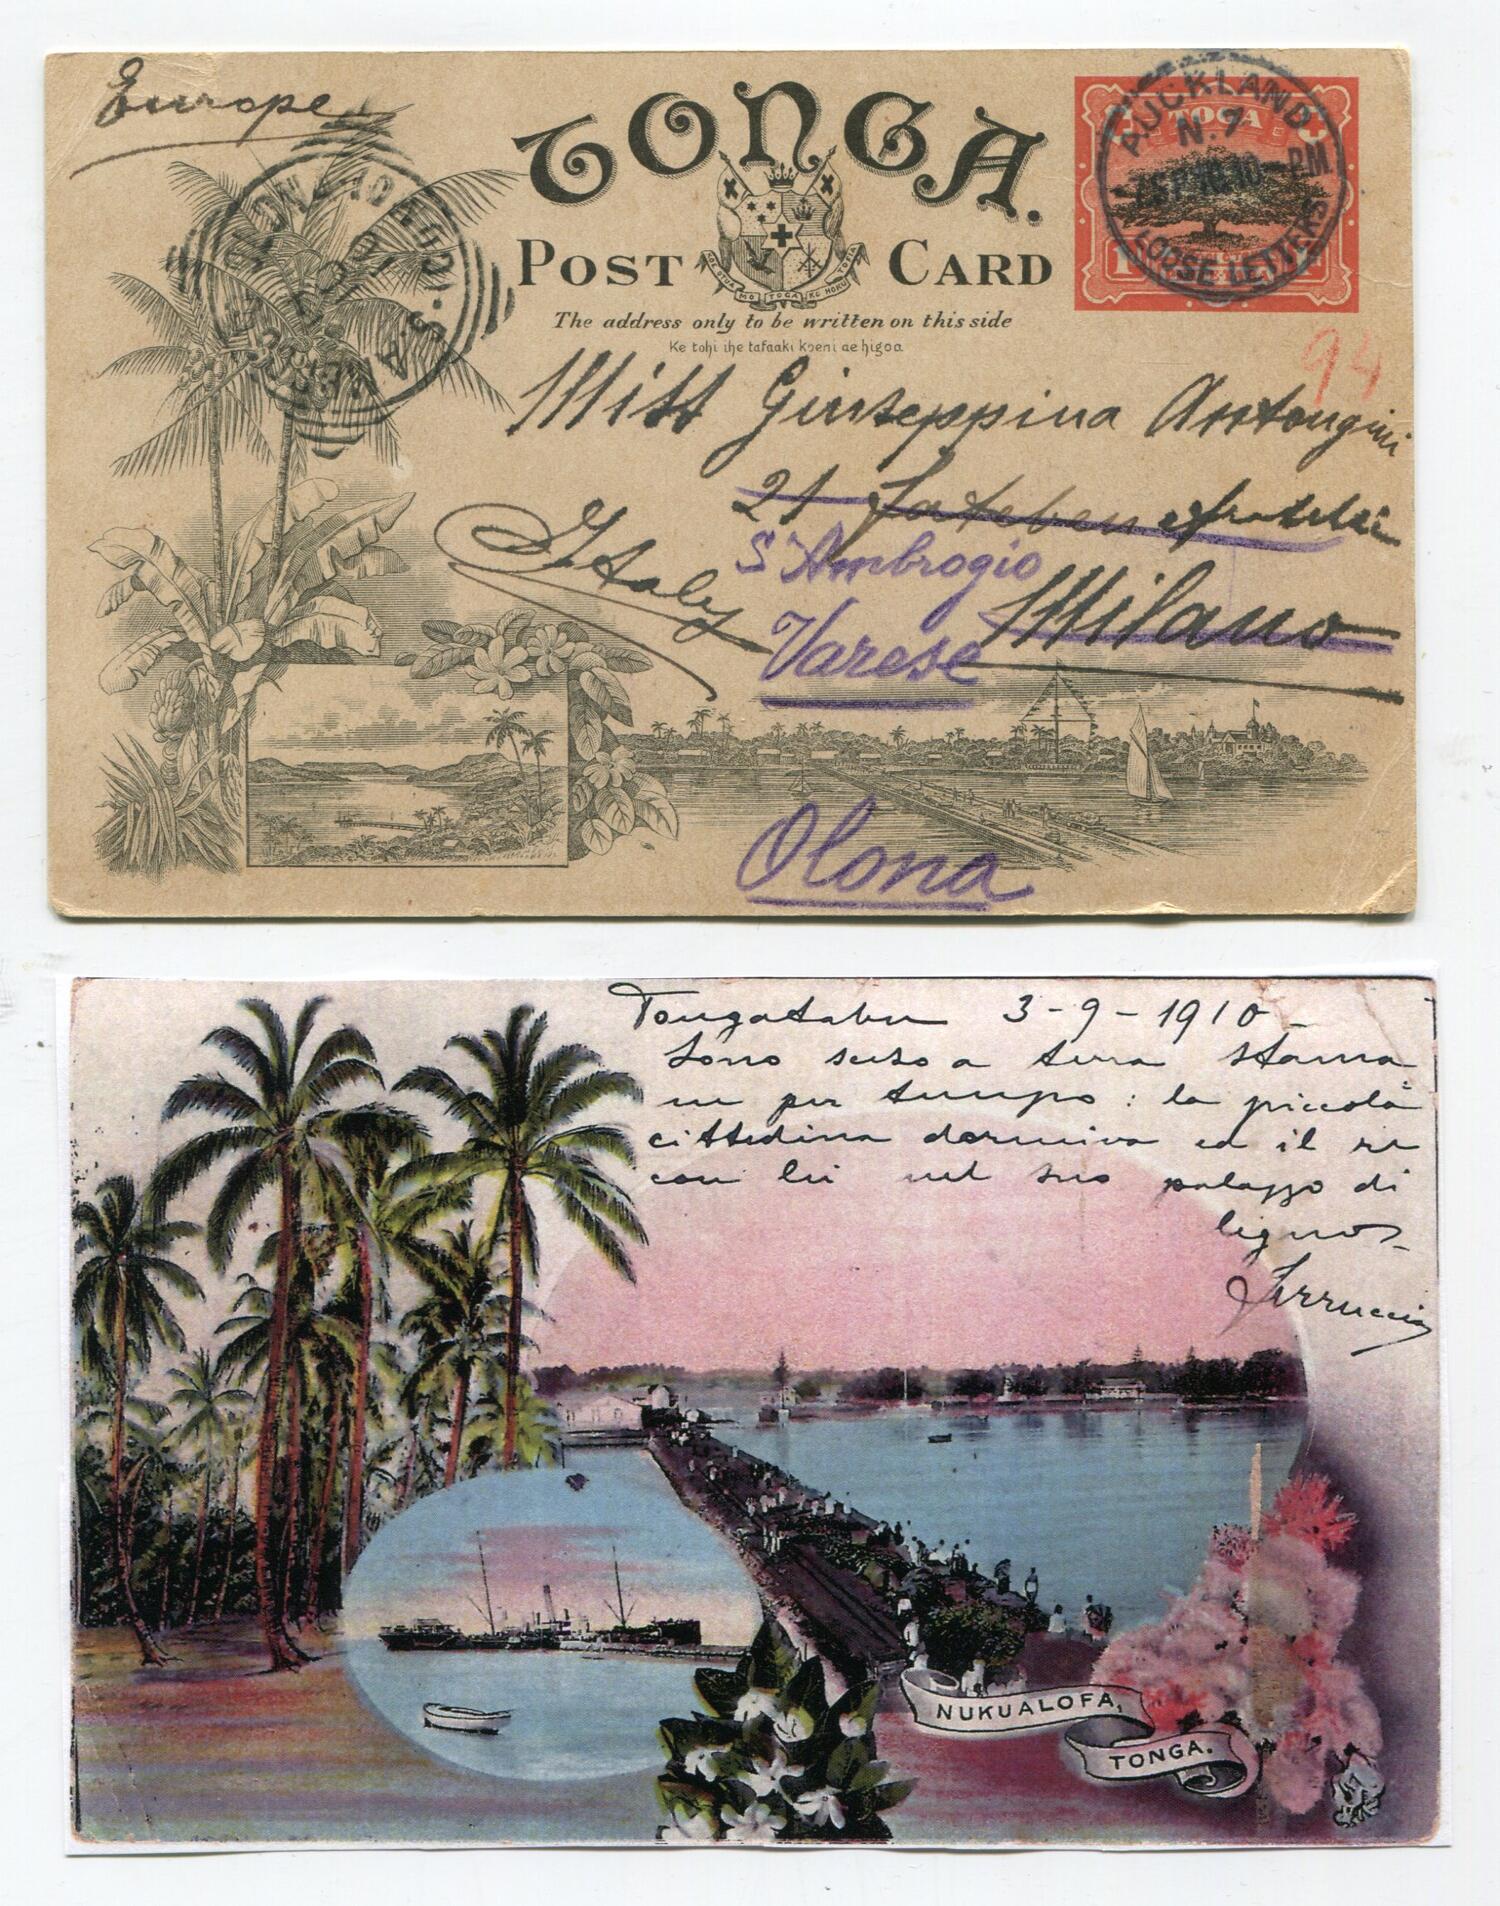 Europe
TONGA.
POST CARD
MO TOGA
The address only to be written on this side
Ke tohi ihe tafaaki koeni ae higoa.
TOGA
AUCKLAND
N.Z
PM
LOOSE LETTERS
94
Miss Giuseppina Antongini
21 Fatebenefratelli
S. Ambrogio
Milano
Italy
Varese
Olona
Tongatabu 3-9-1910-
Sono sceso a terra stama
ne per tempo: la piccola
cittadina dormiva ed il re
con lei nel suo palazzo di
legno
Ferruccio
NUKUALOFA,
TONGA.